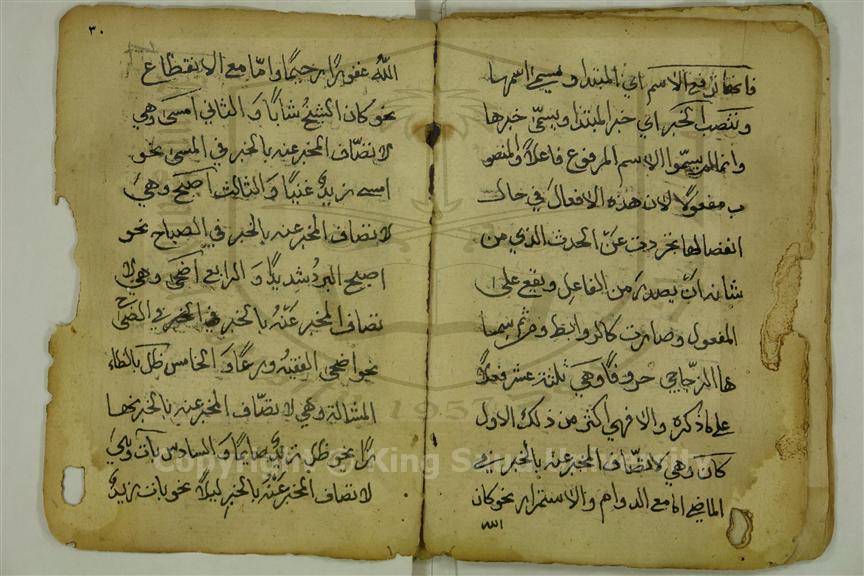 فإنها ترفع الاسم اي المبتدا ويسمى اسمها
وتنصب الخبر اي خبر المبتدا ويسمى خبرها
وانما لم يسموا الاسم المرفوع فاعلاً والمنصو
ب مفعولاً لان هذه الافعال في حالت
انفصالها تجردت عن الحدث الذي من
شانه ان يصدر من الفاعل ويقع على
المفعول وصارت كالروابط ومن ثم سما
ها الزجاجي حروفاً وهي ثلثة عشر فعلاً
على ما ذكره والا فهي اكثر من ذلك الاول
كان وهي لاتصاف المخبر عنه بالخبر في
الماضي اما مع الدوام والاستمرار نحو كان
الله
٣٠
الله غفورًا رحيمًا واما مع الانقطاع
نحو كان الشيخ شابًا والثاني امسى وهي
لاتصاف المخبر عنه بالخبر في المسى نحو
امسى زيدٌ غنيًا والثالث اصبح وهي
لاتصاف المخبر عنه بالخبر في الصباح نحو
اصبح البرد شديدًا والرابع اضحى وهي لا
تصاف المخبر عنه بالخبر في الضحى
نحو اضحى الفقيه ورعًا والخامس ظل بالظاء
المشالة وهي لاتصاف المخبر عنه بالخبر نها
رًا نحو ظل زيدٌ صايمًا والسادس بات وهي
لاتصاف المخبر عنه بالخبر ليلاً نحو بات زيدٌ
Copyright © King Saud University
1957